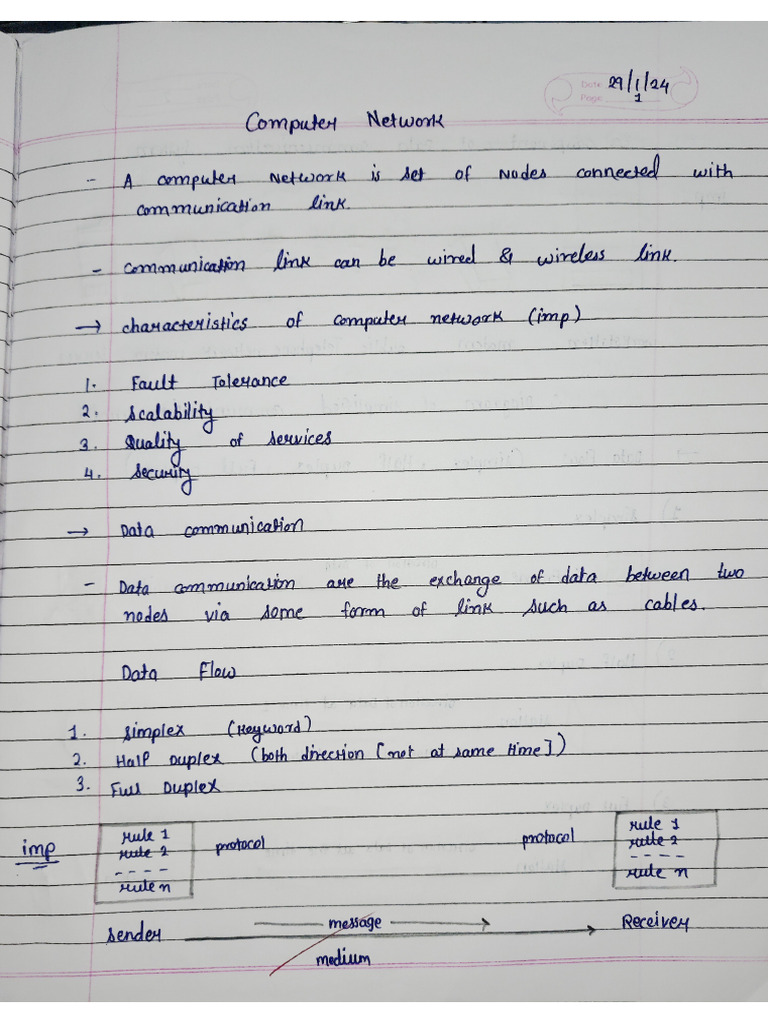 Date 29/1/24
Page 1
Computer Network
- A computer Network is set of Nodes connected with
communication link.
- communication link can be wired & wireless link.
→ characteristics of computer network (imp)
1. Fault Tolerance
2. Scalability
3. Quality of services
4. Security
→ Data communication
- Data communication are the exchange of data between two
nodes via some form of link such as cables.
Data Flow
1. Simplex (Keyword)
2. Half Duplex (both direction [not at same time])
3. Full Duplex
imp rule 1 protocol protocol rule 1
rule 2 rule 2
---- ----
rule n rule n
Sender message Receiver
medium